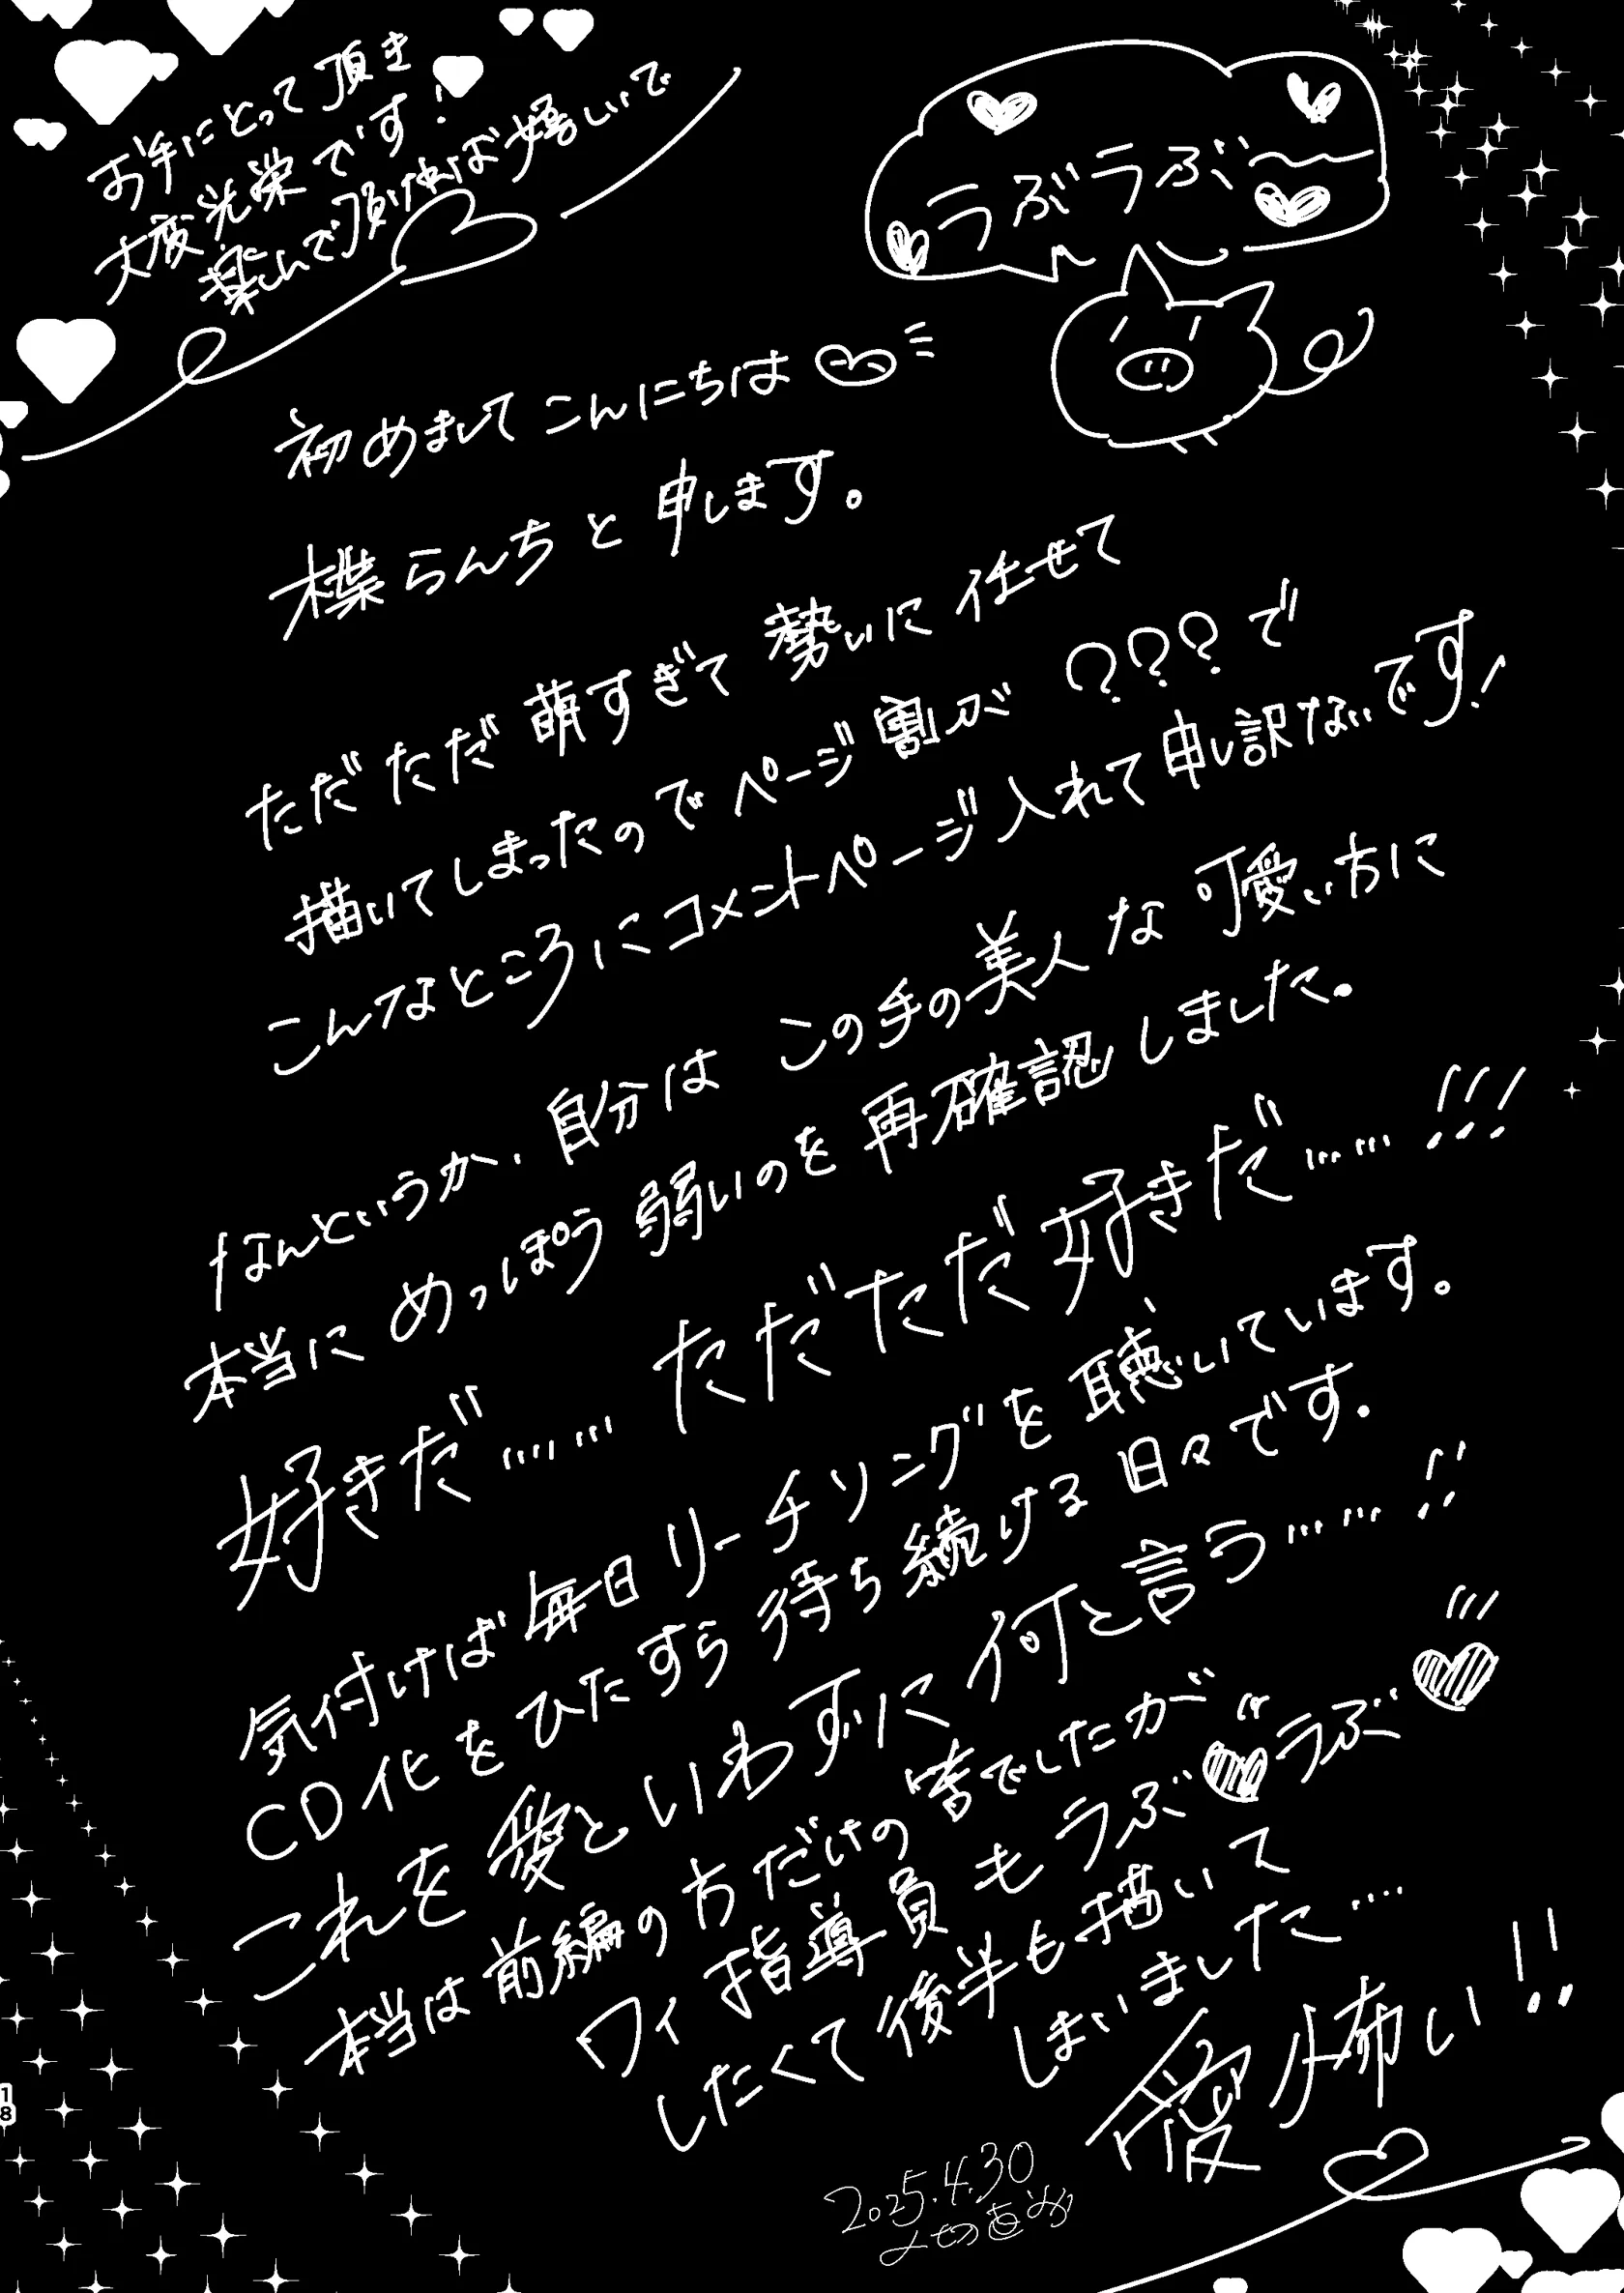 お手にとって頂き
大変光栄です!
楽しんで頂ければ嬉しいで
ラぶラぶ〜
初めましてこんにちは
楪らんちと申します。
ただただ萌すぎて勢いに任せて
描いてしまったのでページ割が???で
こんなところにコメントページ入れて申し訳ないです!
なんというか、自分はこの手の美人な可愛い方に
本当にめっぽう弱いのを再確認しました。
好きだ……ただただただ好きだ……!!!
気付けば毎日リーチソングを聴いています。
CD化をひたすら待ち続ける日々です.
これを愛といわずに何と言う……!!
本当は前編の方だけの筈でしたが
ワイ指導員もラぶラぶ
したくて後半も描いて
しまいました….
愛怖い!!
2025.4.30
18